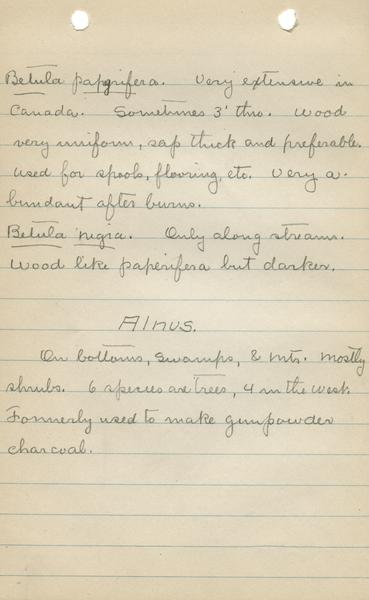 Betula papyrifera. Very extensive in
Canada. Sometimes 3' thro. Wood
very uniform, sap thick and preferable.
Used for spools, flooring, etc. Very a-
bundant after burns.
Betula nigra. Only along streams.
Wood like paperifera but darker.
Alnus.
On bottoms, swamps, & mts. Mostly
shrubs. 6 species are trees, 4 in the west.
Formerly used to make gunpowder
charcoal.